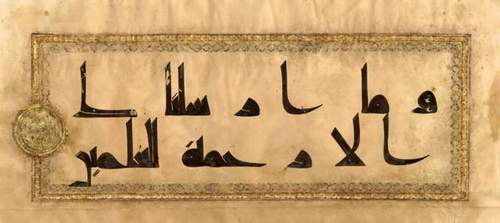 وما ارسلنك
الا رحمة للعلمين